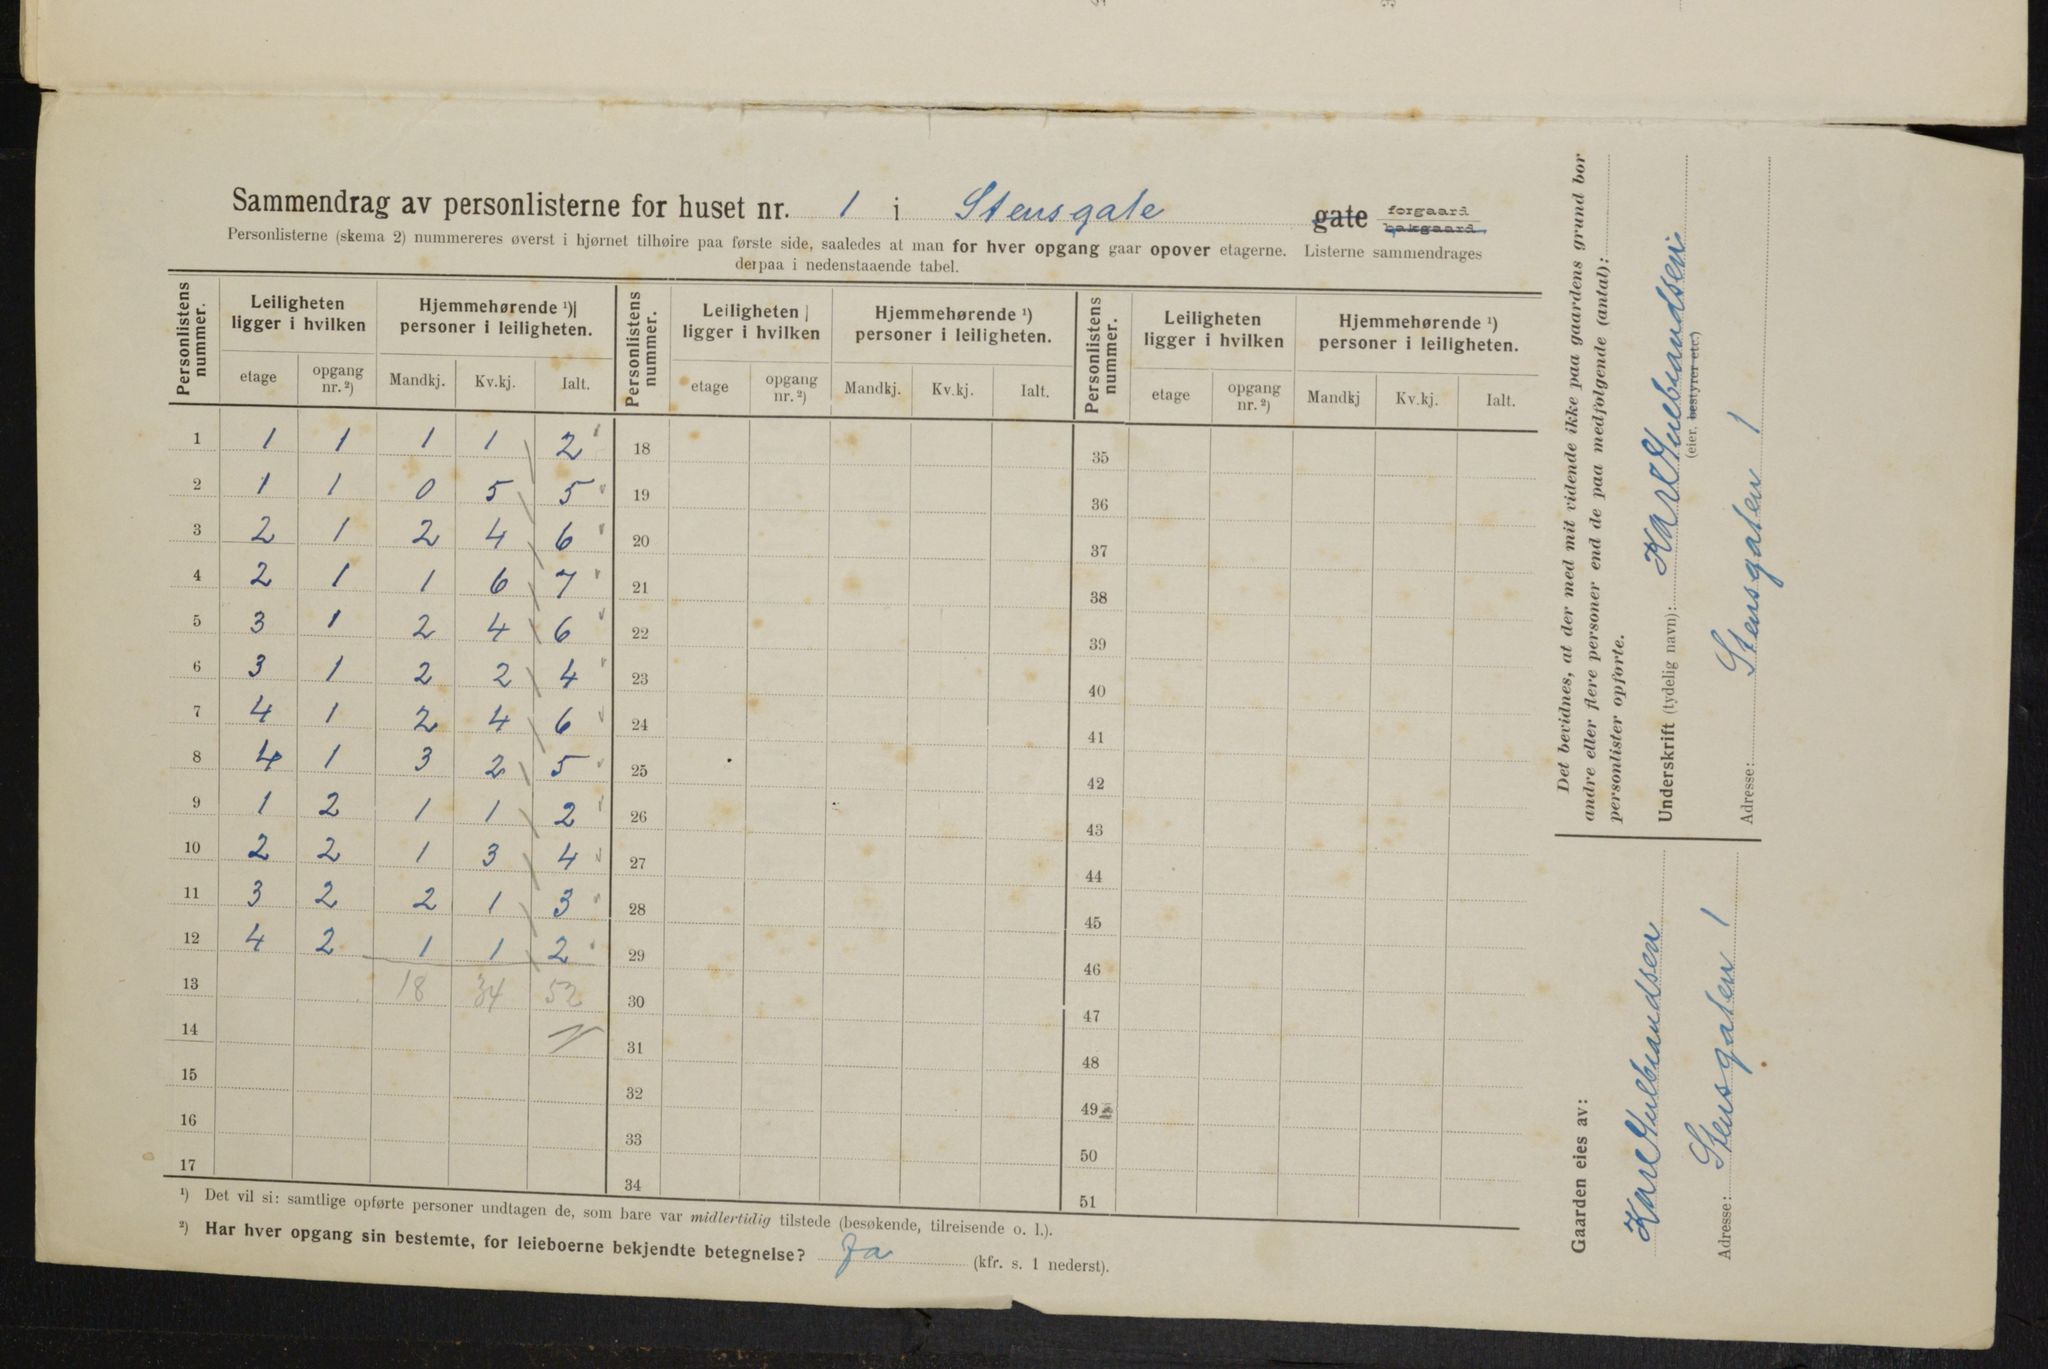 Sammendrag av personlisterne for huset nr. 1 i Stensgate gate forgaard bakgaard
Personlisterne (skema 2) nummereres øverst i hjørnet tilhøire paa første side, saaledes at man for hver opgang gaar opover etagerne. Listerne sammendrages
derpaa i nedenstaaende tabel.
Personlistens nummer. Leiligheten ligger i hvilken Hjemmehørende ¹) personer i leiligheten. Personlistens nummer. Leiligheten ligger i hvilken Hjemmehørende ¹) personer i leiligheten. Personlistens nummer. Leiligheten ligger i hvilken Hjemmehørende ¹) personer i leiligheten.
etage opgang nr.²) Mandkj. Kv.kj. Ialt. etage opgang nr.²) Mandkj. Kv.kj. Ialt. etage opgang nr.²) Mandkj Kv.kj. Ialt.
1 1 1 1 1 2 18 35
2 1 1 0 5 5 19 36
3 2 1 2 4 6 20 37
4 2 1 1 6 7 21 38
5 3 1 2 4 6 22 39
6 3 1 2 2 4 23 40
7 4 1 2 4 6 24 41
8 4 1 3 2 5 25 42
9 1 2 1 1 2 26 43
10 2 2 1 3 4 27 44
11 3 2 2 1 3 28 45
12 4 2 1 1 2 29 46
13 18 34 52 30 47
14 31 48
15 32 49
16 33 50
17 34 51
¹) Det vil si: samtlige opførte personer undtagen de, som bare var midlertidig tilstede (besøkende, tilreisende o. l.).
²) Har hver opgang sin bestemte, for leieboerne bekjendte betegnelse? Ja (kfr. s. 1 nederst).
Det bevidnes, at der med mit vidende ikke paa gaardens grund bor
andre eller flere personer end de paa medfølgende (antal):
personlister opførte.
Underskrift (tydelig navn): Karl Gulbrandsen
(eier, bestyrer etc.)
Adresse: Stensgaten 1
Gaarden eies av:
Karl Gulbrandsen
Adresse: Stensgaten 1